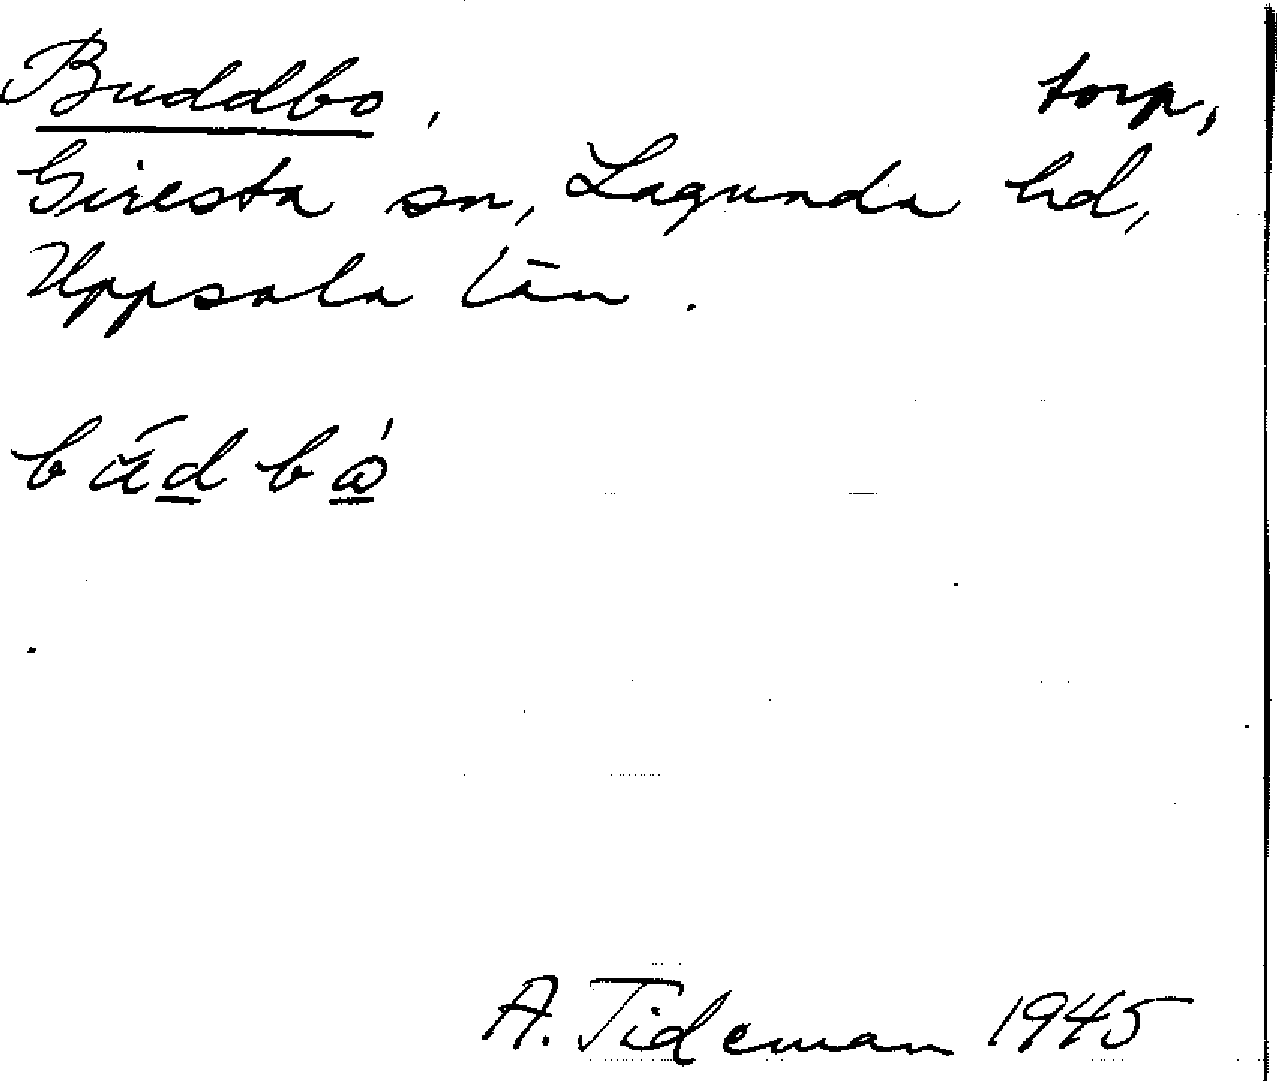 Buddbo, torp,
Giresta sn, Lagunda hd,
Uppsala län.
A. Tideman 1945